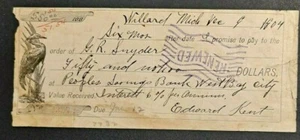 Willard Mich Dec 9 1904
Six Mos after date I promise to pay to the
order of G. R. Snyder
Fifty and no/100 DOLLARS,
at Peoples Savings Bank West Bay City
Value Received Interest 6% per Annum
Due Edward Kent
RENEWED